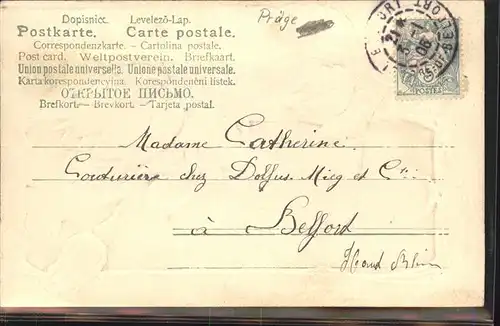 Dopisnice. Levelezö-Lap.
Postkarte. Carte postale.
Correspondenzkarte. - Cartolina postale.
Post card. Weltpostverein. Briefkaart.
Union postale universelle. Unione postale universale.
Karta korespondencyjna. Korespondenční lístek.
ОТКРЫТОЕ ПИСЬМО.
Brefkort.— Brevkort. - Tarjeta postal.
Präge
BELFORT
06
POSTES
Madame Catherine
Couturière chez Dolfus-Mieg et Cie
à Belfort
Haut Rhin